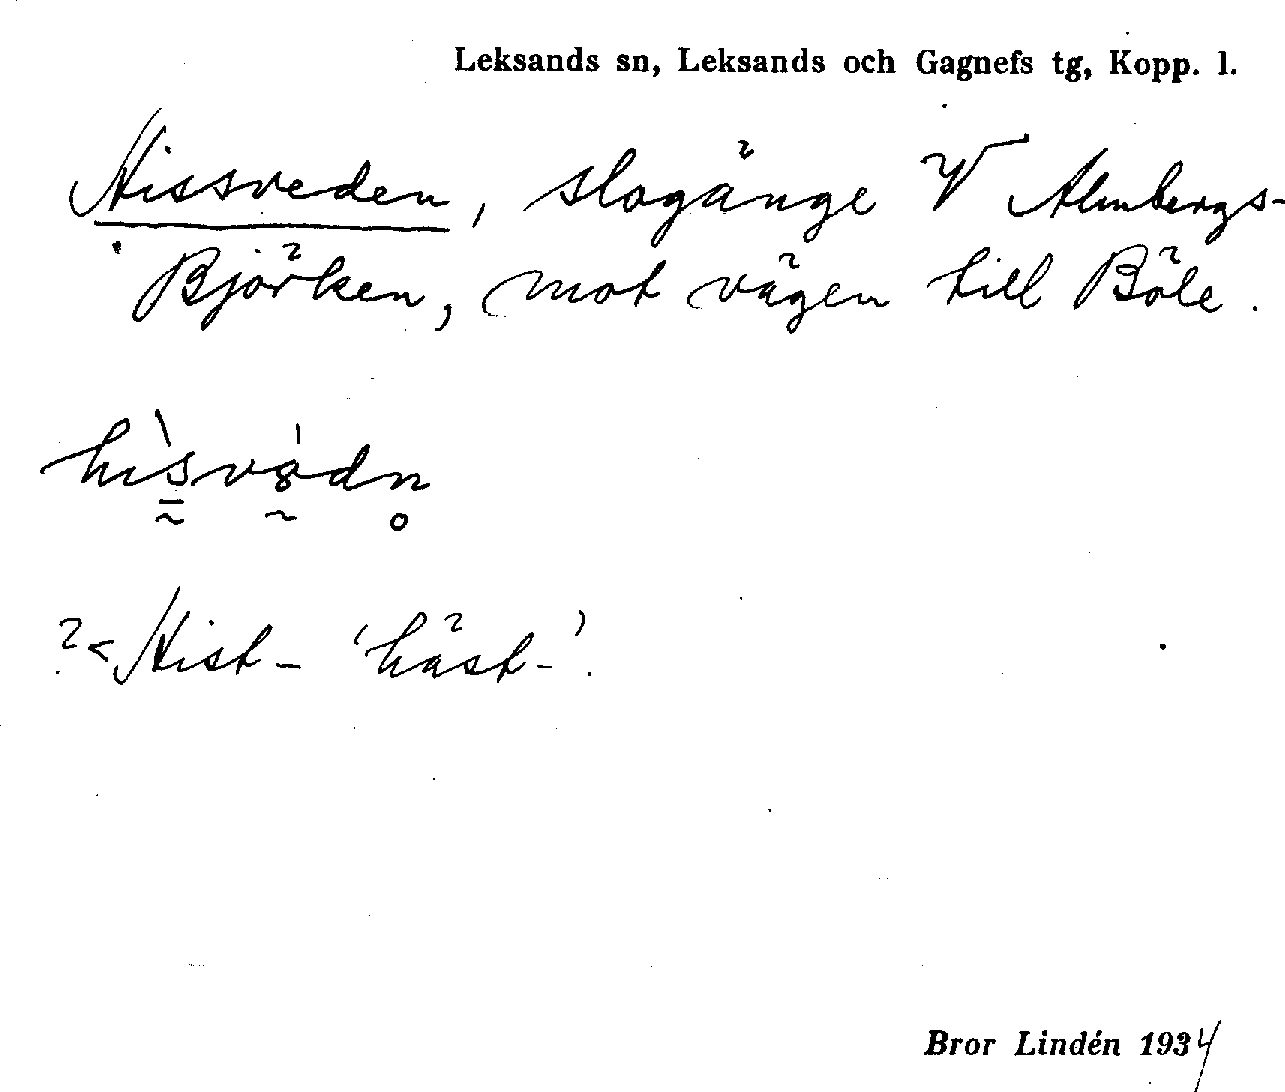 Leksands sn, Leksands och Gagnefs tg, Kopp. l.
Hissveden, slogänge V Almbergs-
Björken, mot vägen till Böle.
hisvødn
? < Hist- 'häst-'.
Bror Lindén 1934